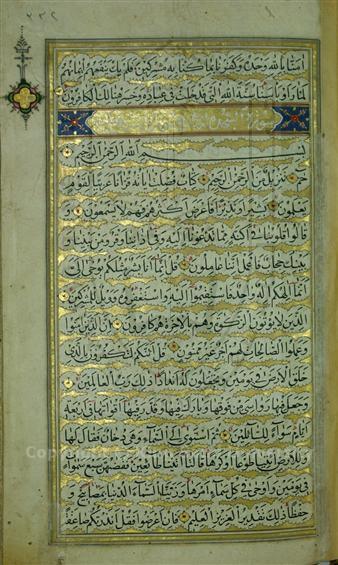 آمنا بالله وحده وكفرنا بما كنا به مشركين فلم يك ينفعهم ايمانهم
لما راوا باسنا سنة الله التي قد خلت في عباده وخسر هنالك الكافرون
بسم الله الرحمن الرحيم
حم تنزيل من الرحمن الرحيم كتاب فصلت اياته قرانا عربيا لقوم
يعلمون بشيرا ونذيرا فاعرض اكثرهم فهم لا يسمعون و
قالوا قلوبنا في اكنة مما تدعونا اليه وفي اذاننا وقر ومن بيننا و
بينك حجاب فاعمل اننا عاملون قل انما انا بشر مثلكم يوحى الي
انما الهكم اله واحد فاستقيموا اليه واستغفروه وويل للمشركين
الذين لا يؤتون الزكوة وهم بالاخرة هم كافرون ان الذين امنوا
وعملوا الصالحات لهم اجر غير ممنون قل ائنكم لتكفرون بالذي
خلق الارض في يومين وتجعلون له اندادا ذلك رب العالمين
وجعل فيها رواسي من فوقها وبارك فيها وقدر فيها اقواتها في اربعة
ايام سواء للسائلين ثم استوى الى السماء وهي دخان فقال لها
وللارض ائتيا طوعا او كرها قالتا اتينا طائعين فقضيهن سبع سموات
في يومين واوحى في كل سماء امرها وزينا السماء الدنيا بمصابيح و
حفظا ذلك تقدير العزيز العليم فان اعرضوا فقل انذرتكم صاعقة